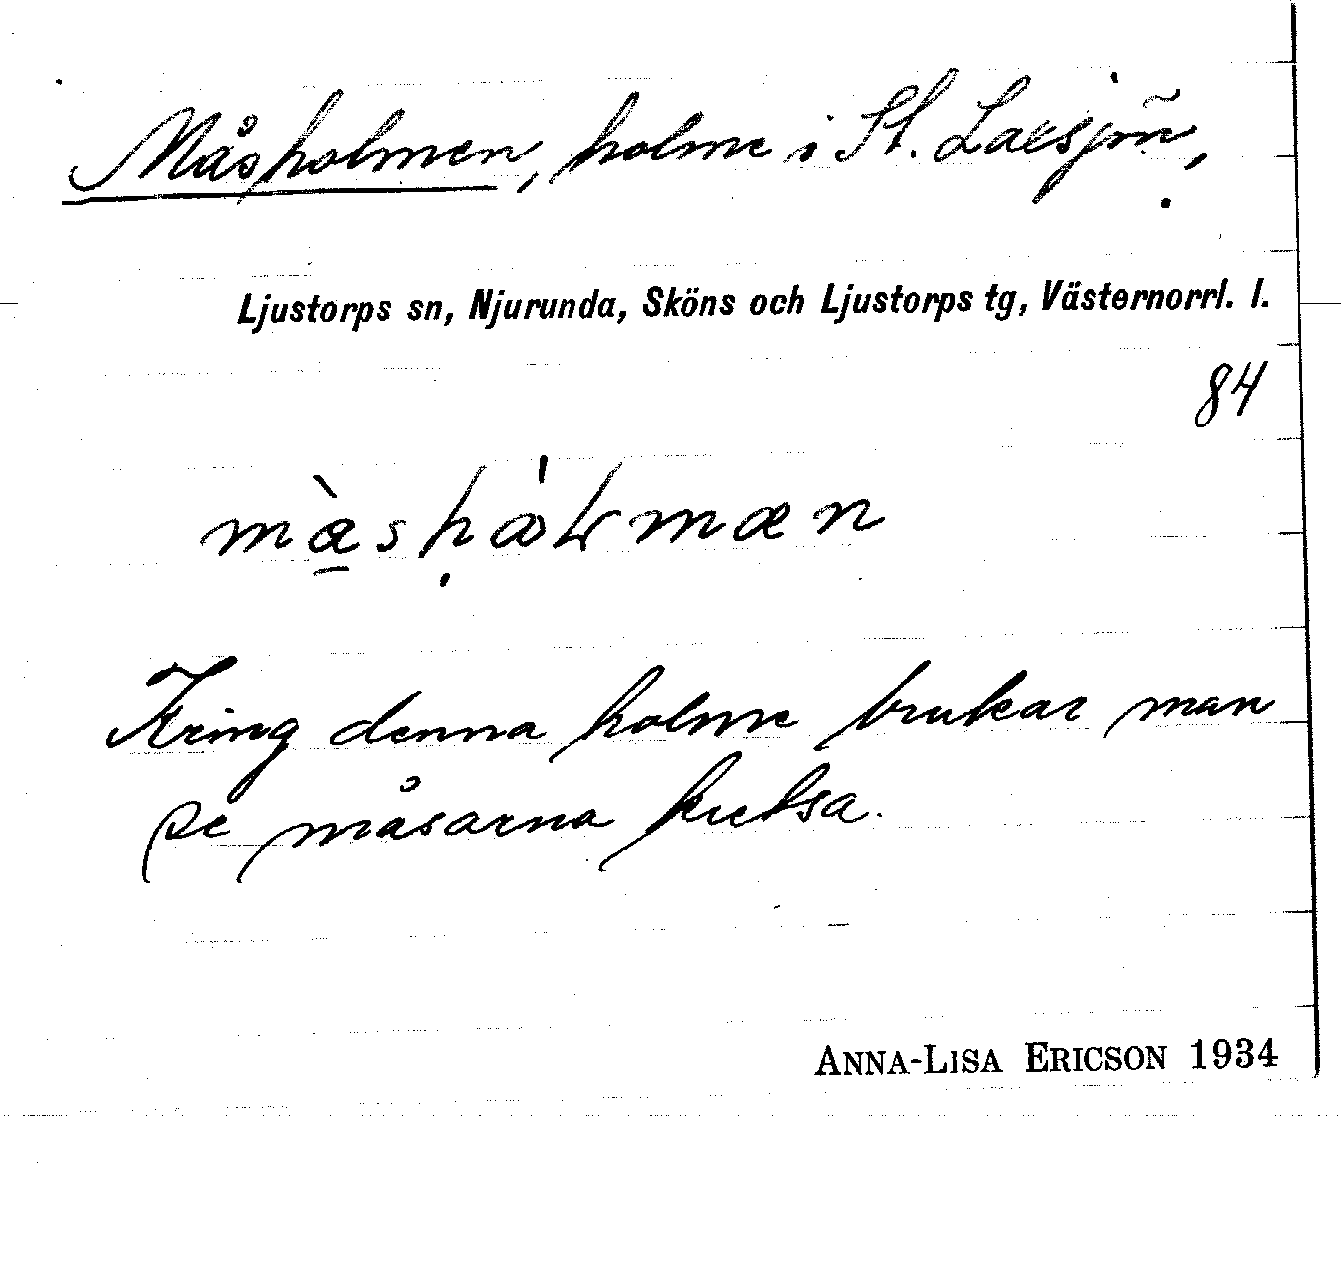 Måsholmen, holme i St. Laxsjön,
Ljustorps sn, Njurunda, Sköns och Ljustorps tg, Västernorrl. l.
84
Kring denna holme brukar man
se måsarna kretsa.
ANNA-LISA ERICSON 1934